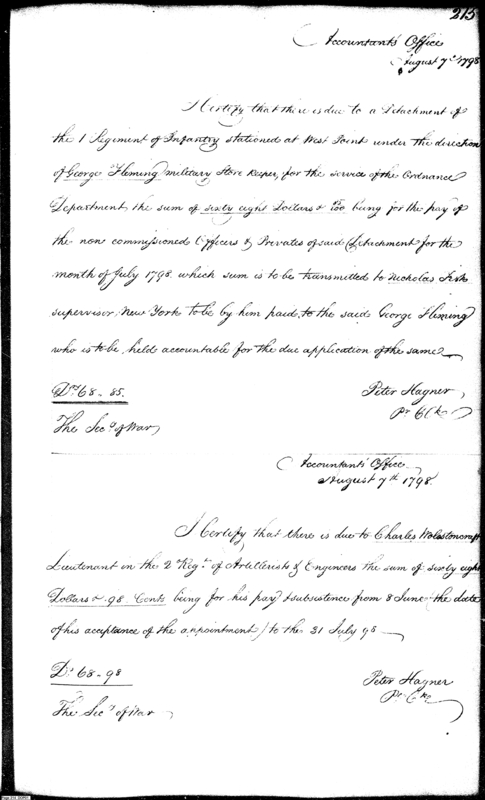 215
Accountants Office
August 7th 1798
I Certify that there is due to a Detachment of
the 1 Regiment of Infantry stationed at West Point under the direction
of George Fleming military Store Keeper, for the service of the Ordnance
Department the sum of sixty eight Dollars & 85/100 being for the pay of
the non commissioned Officers & Privates of said Detachment for the
month of July 1798. which sum is to be transmitted to Nicholas Fish
supervisor New York to be by him paid, to the said George Fleming
who is to be held accountable for the due application of the same
Drs 68 - 85.
Peter Hagner
Pr Clk
The Secy of War
Accountants Office
August 7th 1798.
I Certify that there is due to Charles Wolstoncraft
Lieutenant in the 2 Regt. of Artillerists & Engineers the sum of sixty eight
Dollars & 98. Cents being for his pay & subsistence from 8 June (the date
of his acceptance of the appointment) to the 31 July 98
Ds 68 - 98
Peter Hagner
Pr Clk
The Secy of War